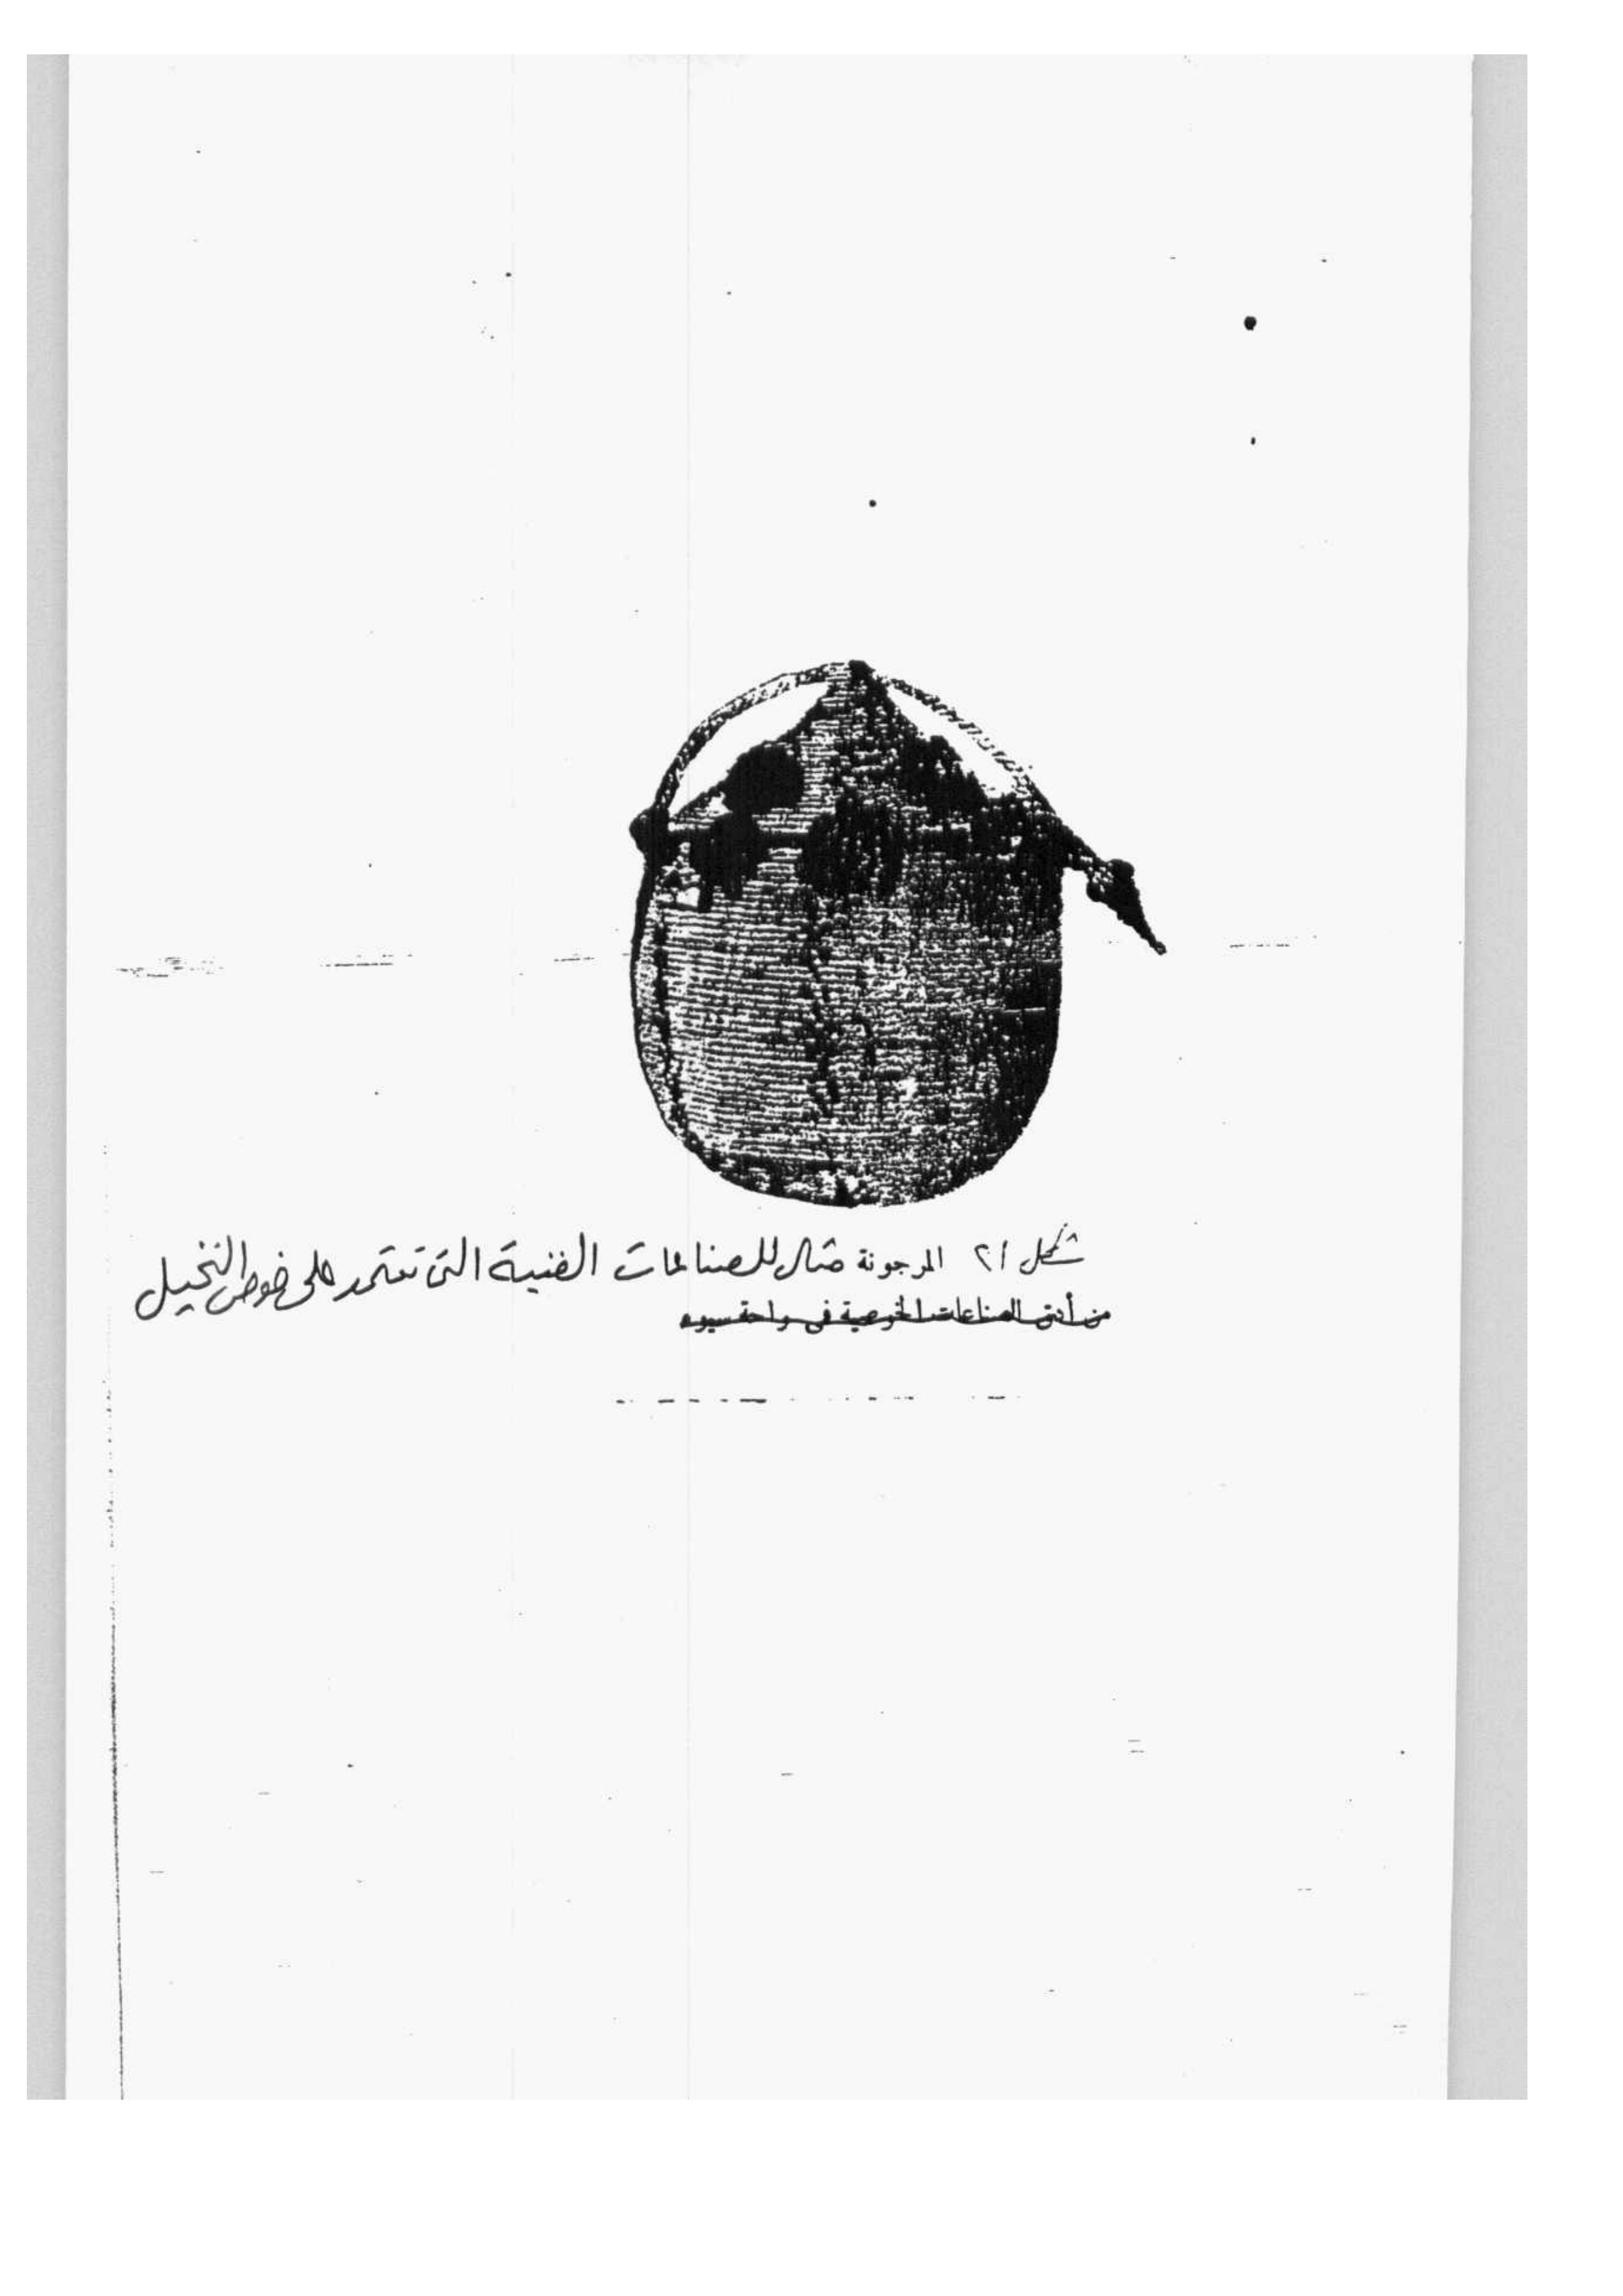 شكل ٢١ المرجونة مثال للصناعات الفنية التى تعتمد على خوص النخيل
من أدق الصناعات الخوصية فى واحة سيوه